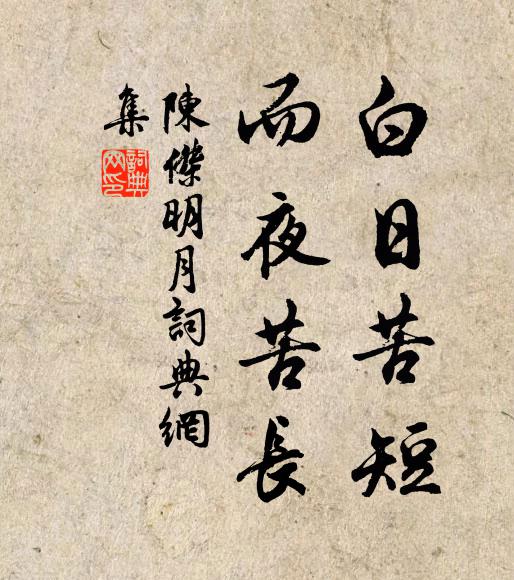 白日苦短
而夜苦長
陳傑明月詞典網
集
詞典網印